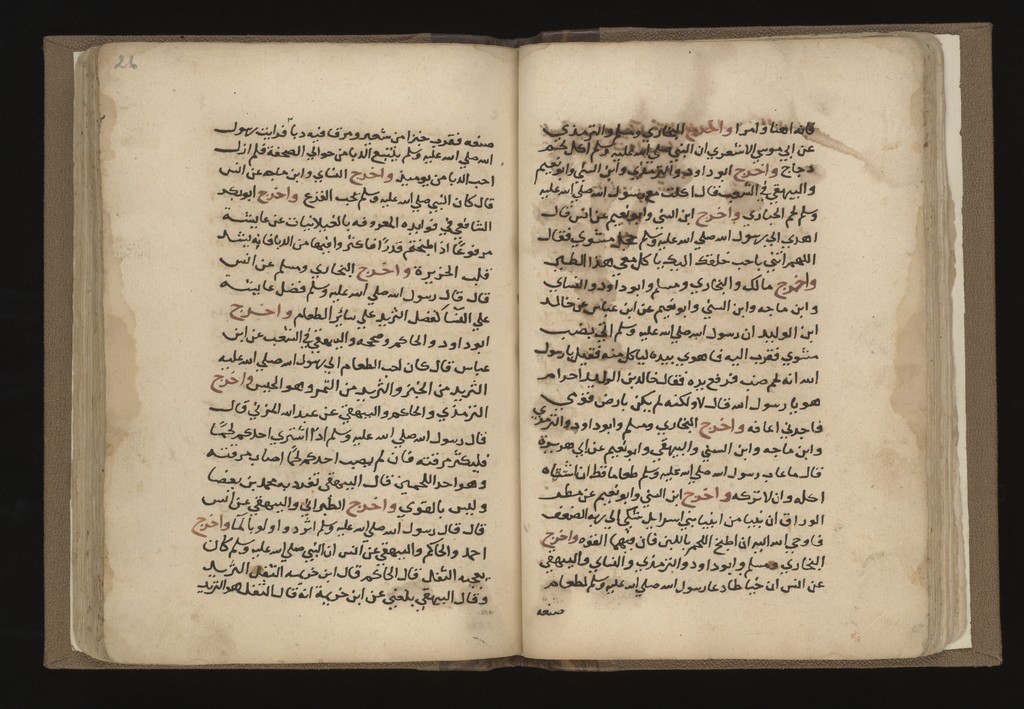 فانه اهنا وامرا واخرج البخاري ومسلم والترمذي
عن ابي موسي الاشعري ان النبي صلي الله عليه وسلم اكل لحم
دجاج واخرج ابو داود والترمذي وابن السني وابو نعيم
والبيهقي في الشعب قال اكلت مع رسول الله صلي الله عليه
وسلم لحم الحباري واخرج ابن السني وابو نعيم عن انس قال
اهدي الي رسول الله صلي الله عليه وسلم حجل مشوي فقال
اللهم ائتني باحب خلقك اليك ياكل معي هذا الطير
واخرج مالك والبخاري ومسلم وابو داود والنساي
وابن ماجه وابن السني وابو نعيم عن ابن عباس عن خالد
ابن الوليد ان رسول الله صلي الله عليه وسلم اتي بضب
مشوي فقرب اليه فاهوي بيده لياكل منه فقيل يا رسول
الله انه لحم ضب فرفع يده فقال خالد بن الوليد احرام
هو يا رسول الله قال لا ولكنه لم يكن بارض قومي
فاجدني اعافه واخرج البخاري ومسلم وابو داود والترمذي
وابن ماجه وابن السني والبيهقي وابو نعيم عن ابي هريرة
قال ما عاب رسول الله صلي الله عليه وسلم طعاما قط ان اشتهاه
اكله والا تركه واخرج ابن السني وابو نعيم عن مطر
الوراق ان نبيا من انبيا بني اسرايل شكي الي ربه الضعف
فاوحي الله اليه ان اطبخ اللحم باللبن فان فيهما القوه واخرج
البخاري ومسلم وابو داود والترمذي والنساي والبيهقي
عن انس ان خياطا دعا رسول الله صلي الله عليه وسلم لطعام
صنعه
26
صنعه فقرب خبزا من شعير ومرقا فيه دبا فرايت رسول
الله صلي الله عليه وسلم يتتبع الدبا من حوالي الصحفة فلم ازل
احب الدبا من يوميذ واخرج النساي وابن ماجه عن انس
قال كان النبي صلي الله عليه وسلم يحب القرع واخرج ابو بكر
الشافعي في فوايده المعروفه بالغيلانيات عن عايشة
مرفوعا اذا طبختم قدرا فاكثروا فيها من الدبا فانه يشد
قلب الحزين واخرج البخاري ومسلم عن انس
قال قال رسول الله صلي الله عليه وسلم فضل عايشة
علي النسا كفضل الثريد علي ساير الطعام واخرج
ابو داود والحاكم وصححه والبيهقي في الشعب عن ابن
عباس قال كان احب الطعام الي رسول الله صلي الله عليه
الثريد من الخبز والثريد من التمر وهو الحيس واخرج
الترمذي والحاكم والبيهقي عن عبد الله المزني قال
قال رسول الله صلي الله عليه وسلم اذا اشتري احدكم لحما
فليكثر مرقته فان لم يصب احدكم لحما اصاب مرقته
وهو احد اللحمين قال البيهقي تفرد به محمد بن فضا
وليس بالقوي واخرج الطبراني والبيهقي عن انس
قال قال رسول الله صلي الله عليه وسلم اثردوا ولو بالما واخرج
احمد والحاكم والبيهقي عن انس ان النبي صلي الله عليه وسلم كان
يعجبه الثفل قال الحاكم قال ابن خزيمه الثفل الثريد
وقال البيهقي بلغني عن ابن خزيمة انه قال الثفل هو الثريد